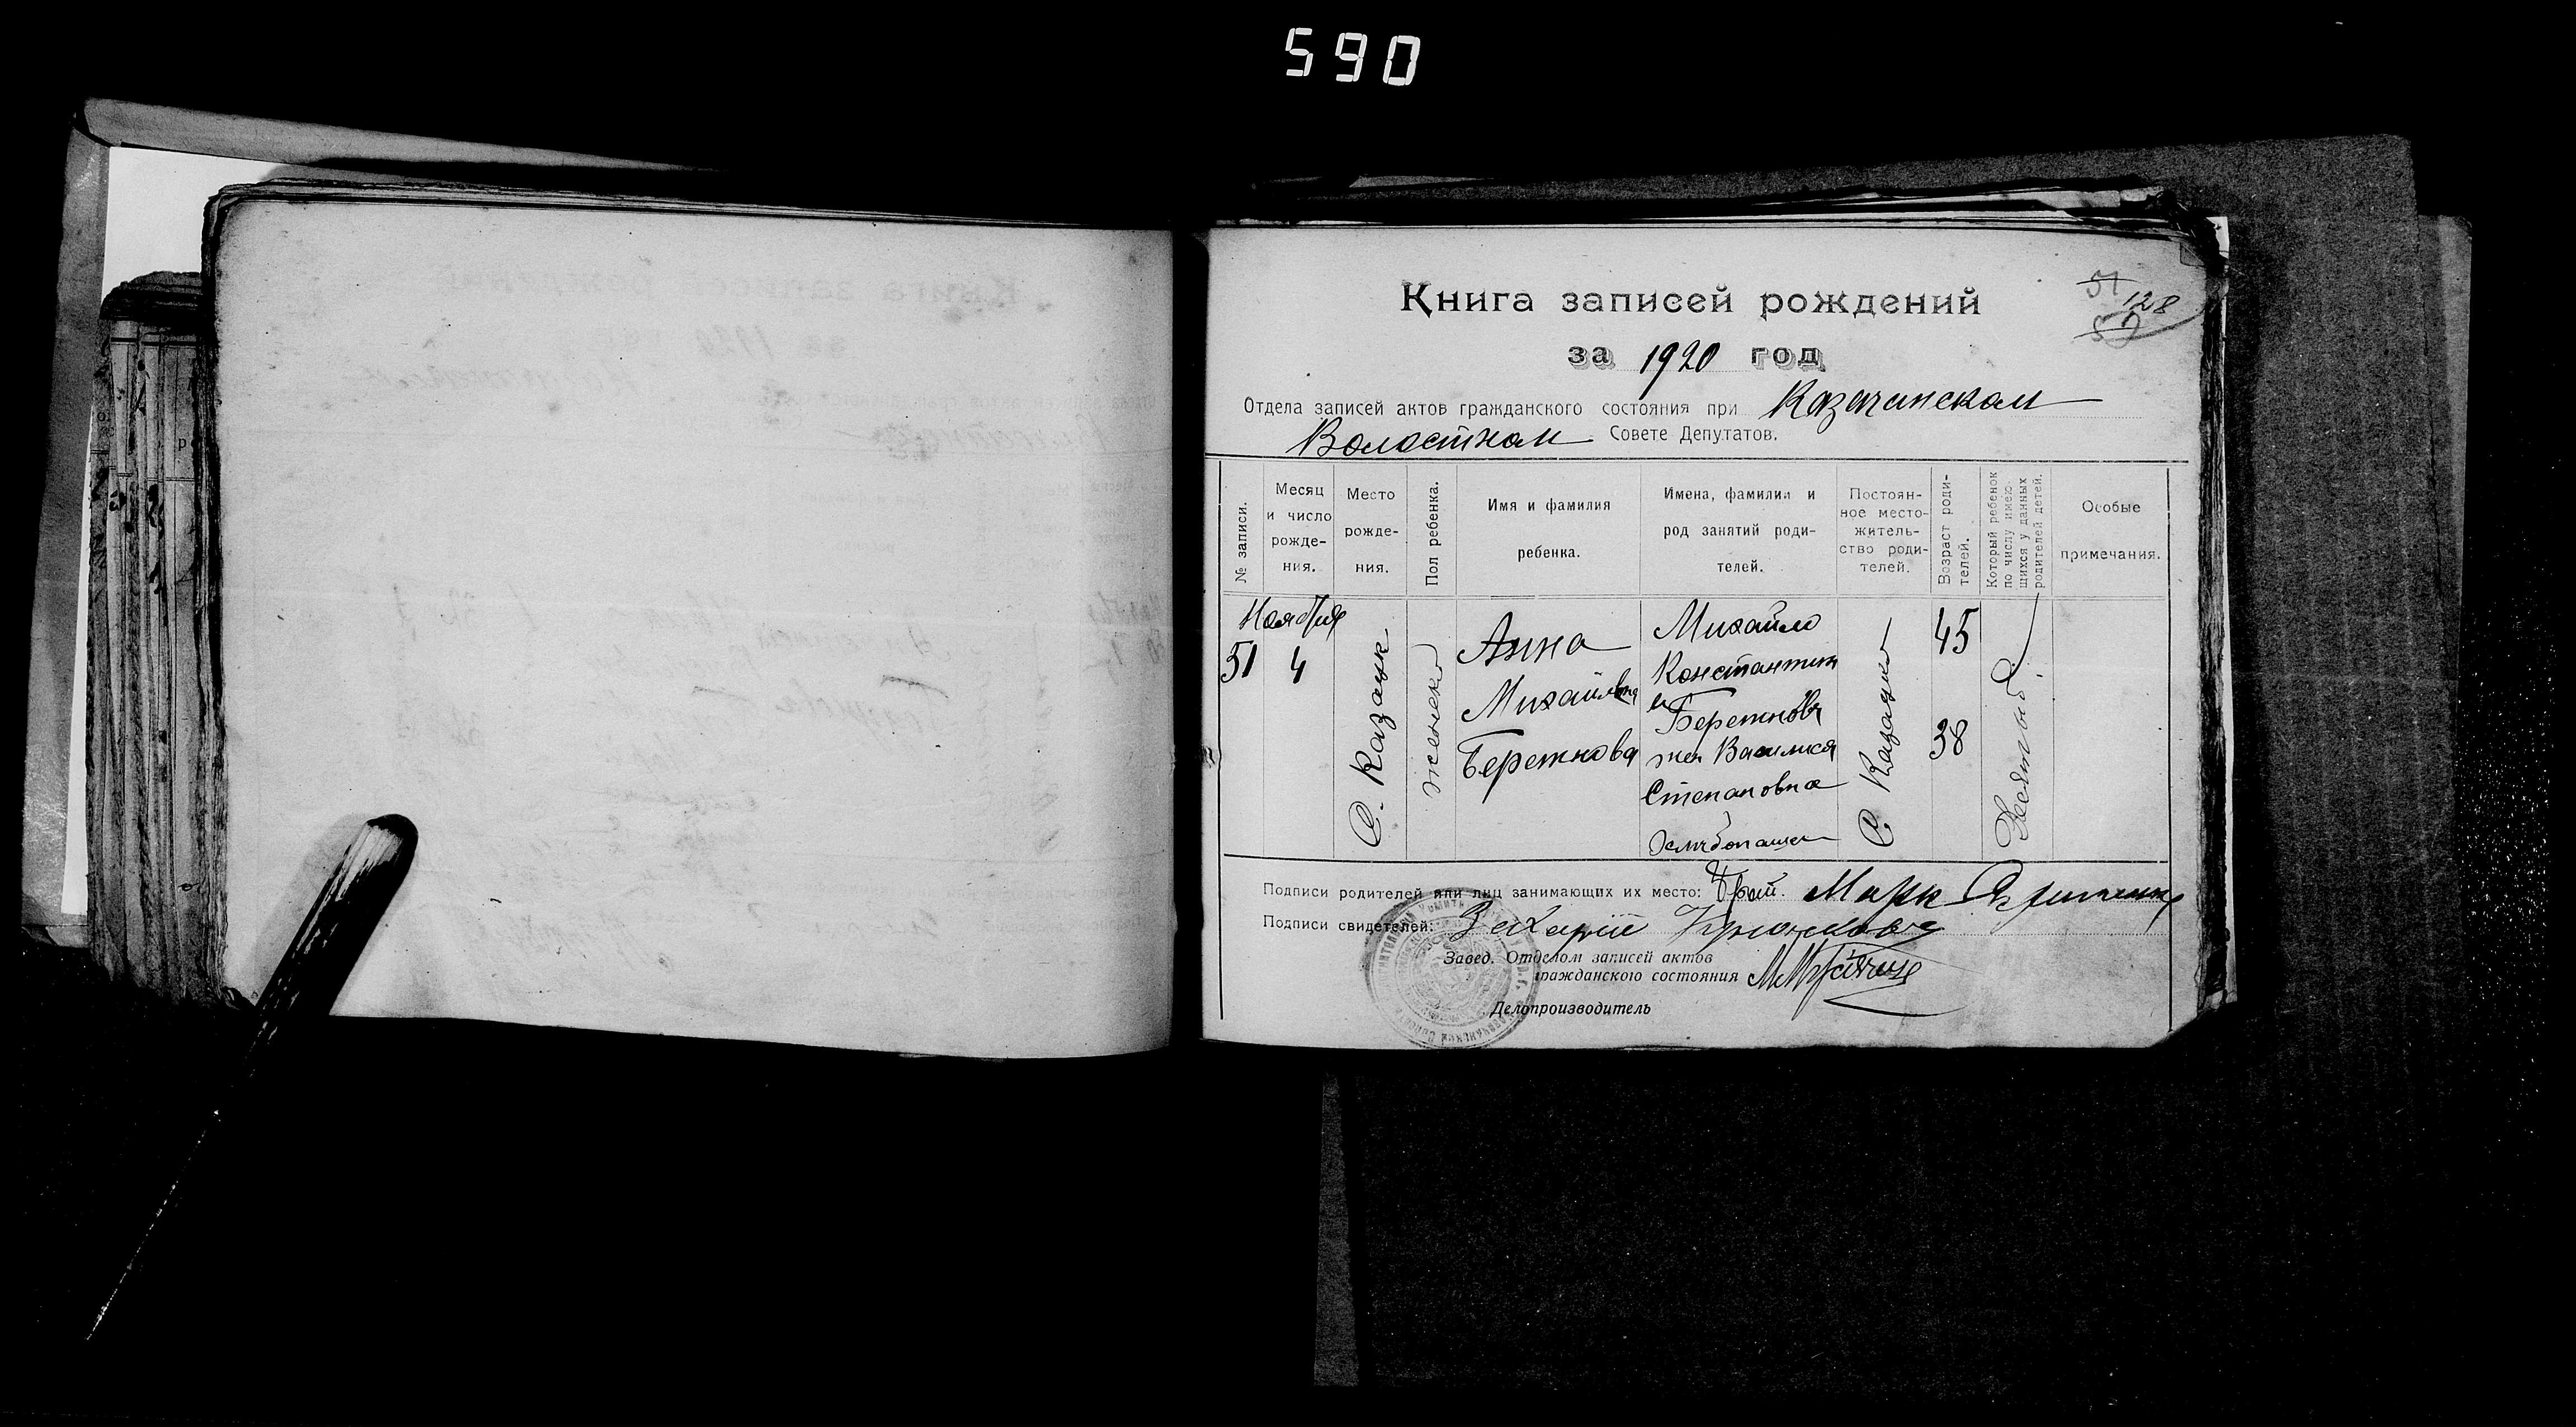 590
51
128
52
Книга записей рождений
за 1920 год
Отдела записей актов гражданского состояния при Казачинском
Волостном Совете Депутатов.
№ записи.
Месяц
и число
рожде-
ния.
Место
рожде-
ния.
Пол ребенка.
Имя и фамилия
ребенка.
Имена, фамилии и
род занятий роди-
телей.
Постоян-
ное место-
житель-
ство роди-
телей.
Возраст роди-
телей.
Который ребенок
по числу имею-
щихся у данных
родителей детей.
Особые
примечания.
Ноября
51
4
С. Казацк
женско
Анна
Михайлвна
Бережнова
Михайло
Константин
Бережновъ
жен Василиса
Степановна
С. Казацко
45
38
Подписи родителей или лиц занимающих их место: Марк
Подписи свидетелей: Захарий
Завед. Отделом записей актов
гражданского состояния
Делопроизводитель